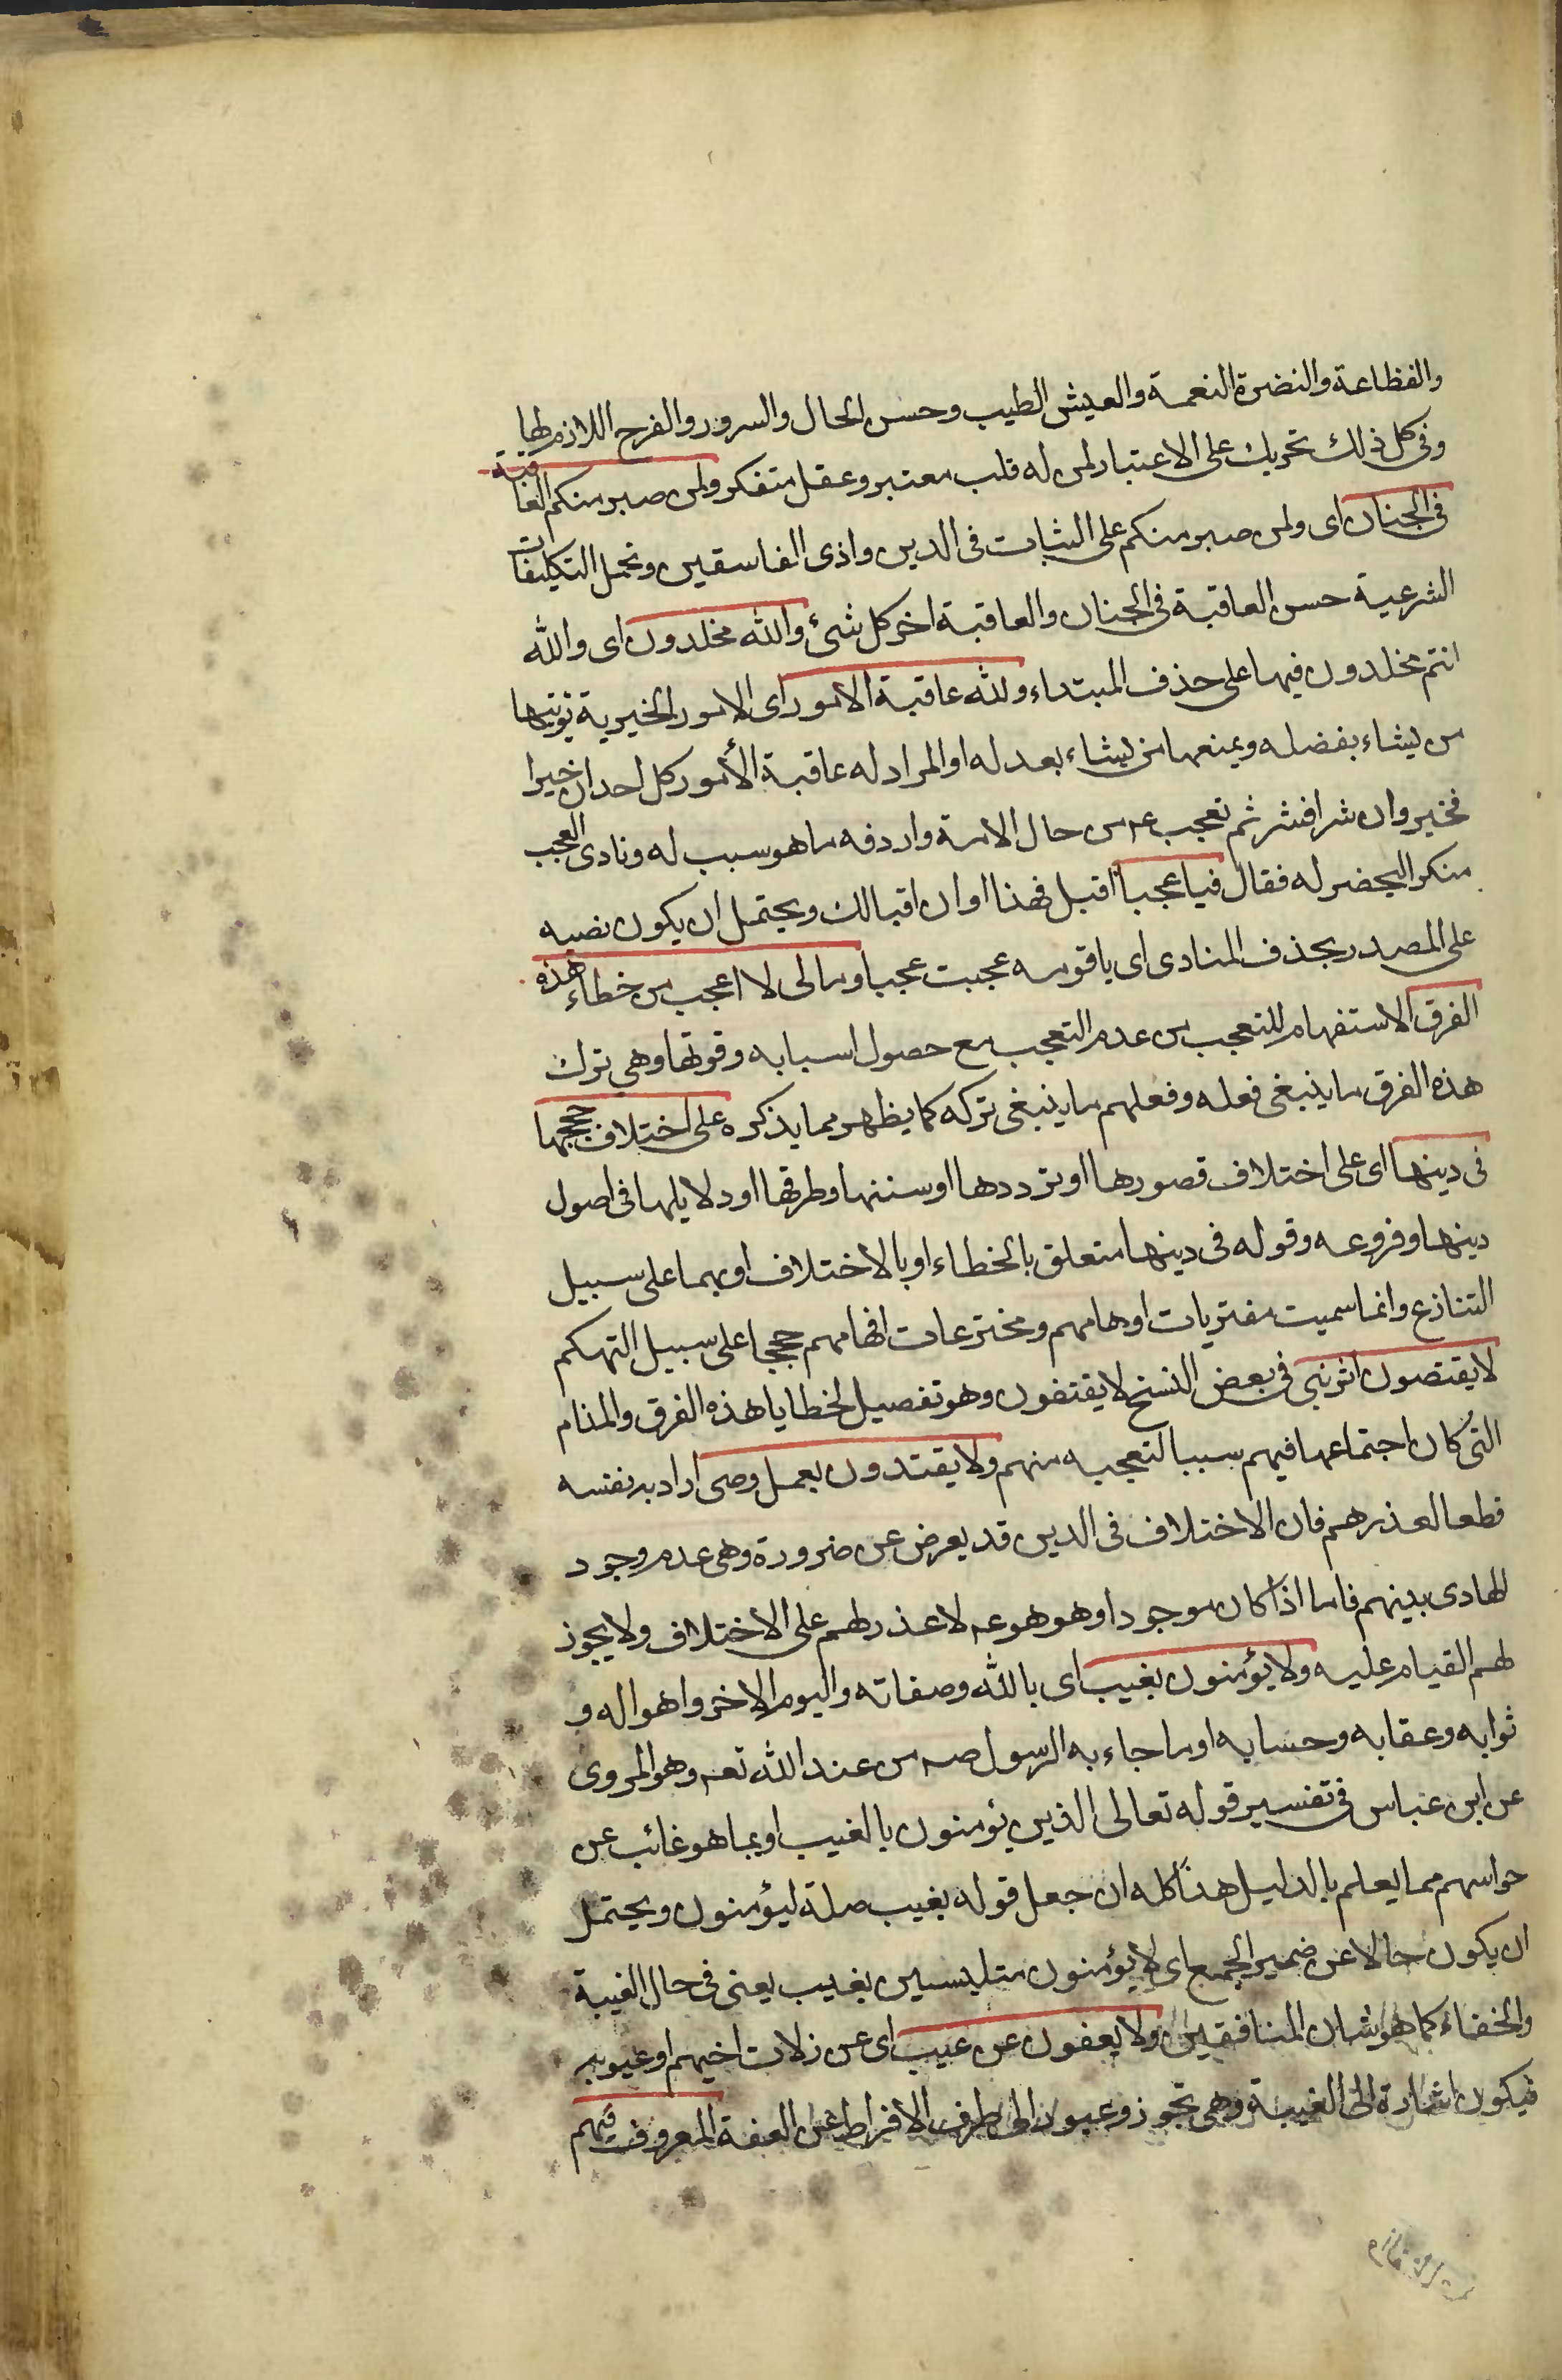 والفظاعة والنضرة النعمة والعيش الطيب وحسن الحال والسرور والفرح اللازم لها
وفى كل ذلك تحريك على الاعتبار لمن له قلب معتبر وعقل متفكر ولمن صبر منكم العاقبة
فى الجنان اى ولمن صبر منكم على الثبات فى الدين واذى الفاسقين وتحمل التكليفات
الشرعية حسن العاقبة فى الجنان والعاقبة اخر كل شئ والله مخلدون اى والله
انتم مخلدون فيها على حذف المبتداء ولله عاقبة الامور اى الامور الخيرية يؤتيها
من يشاء بفضله ويمنعها من يشاء بعدله او المراد له عاقبة الأمور كل احد ان خيرا
فخير وان شرا فشر ثم تعجب عم من حال الامة واردفه ما هو سبب له ونادى العجب
منكرا ليحضر له فقال فيا عجبا اقبل فهذا اوان اقبالك ويحتمل ان يكون نصبه
على المصدر بحذف المنادى اى يا قوم عجبت عجبا ومالى لا اعجب من خطاء هذه
الفرق الاستفهام للتعجب من عدم التعجب مع حصول اسبابه وقوتها وهى ترك
هذه الفرق ما ينبغى فعله وفعلهم ما ينبغى تركه كما يظهر مما يذكره على اختلاف حججها
فى دينها اى على اختلاف قصورها او ترددها او سننها وطرقها او دلايلها فى اصول
دينها وفروعه وقوله فى دينها متعلق بالخطاء او بالاختلاف او بهما على سبيل
التنازع وانما سميت مفتريات اوهامهم ومخترعات افهامهم حججا على سبيل التهكم
لا يقتصون اثر نبى فى بعض النسخ لا يقتفون وهو تفصيل لخطايا هذه الفرق والمذام
التى كان اجتماعها فيهم سببا لتعجبه منهم ولا يقتدون بعمل وصى اراد به نفسه
قطعا لعذرهم فان الاختلاف فى الدين قد يعرض عن ضرورة وهى عدم وجود
الهادى بينهم فاما اذا كان موجودا وهو هو عم لا عذر لهم على الاختلاف ولا يجوز
لهم القيام عليه ولا يؤمنون بغيب اى بالله وصفاته واليوم الاخر واهواله و
ثوابه وعقابه وحسابه او ما جاء به الرسول صم من عند الله تعم وهو المروى
عن ابن عباس فى تفسير قوله تعالى الذين يؤمنون بالغيب او بما هو غائب عن
حواسهم مما يعلم بالدليل هذا كله ان جعل قوله بغيب صلة ليؤمنون ويحتمل
ان يكون حالا عن ضمير الجمع اى لا يؤمنون متلبسين بغيب يعنى فى حال الغيبة
والخفاء كما هو شان المنافقين ولا يعفون عن عيب اى عن زلات اخيهم او عيوبه
فيكون اشارة الى الغيبة وهى تجوز وعبور الى طرف الافراط عن العفة المعروف فيهم